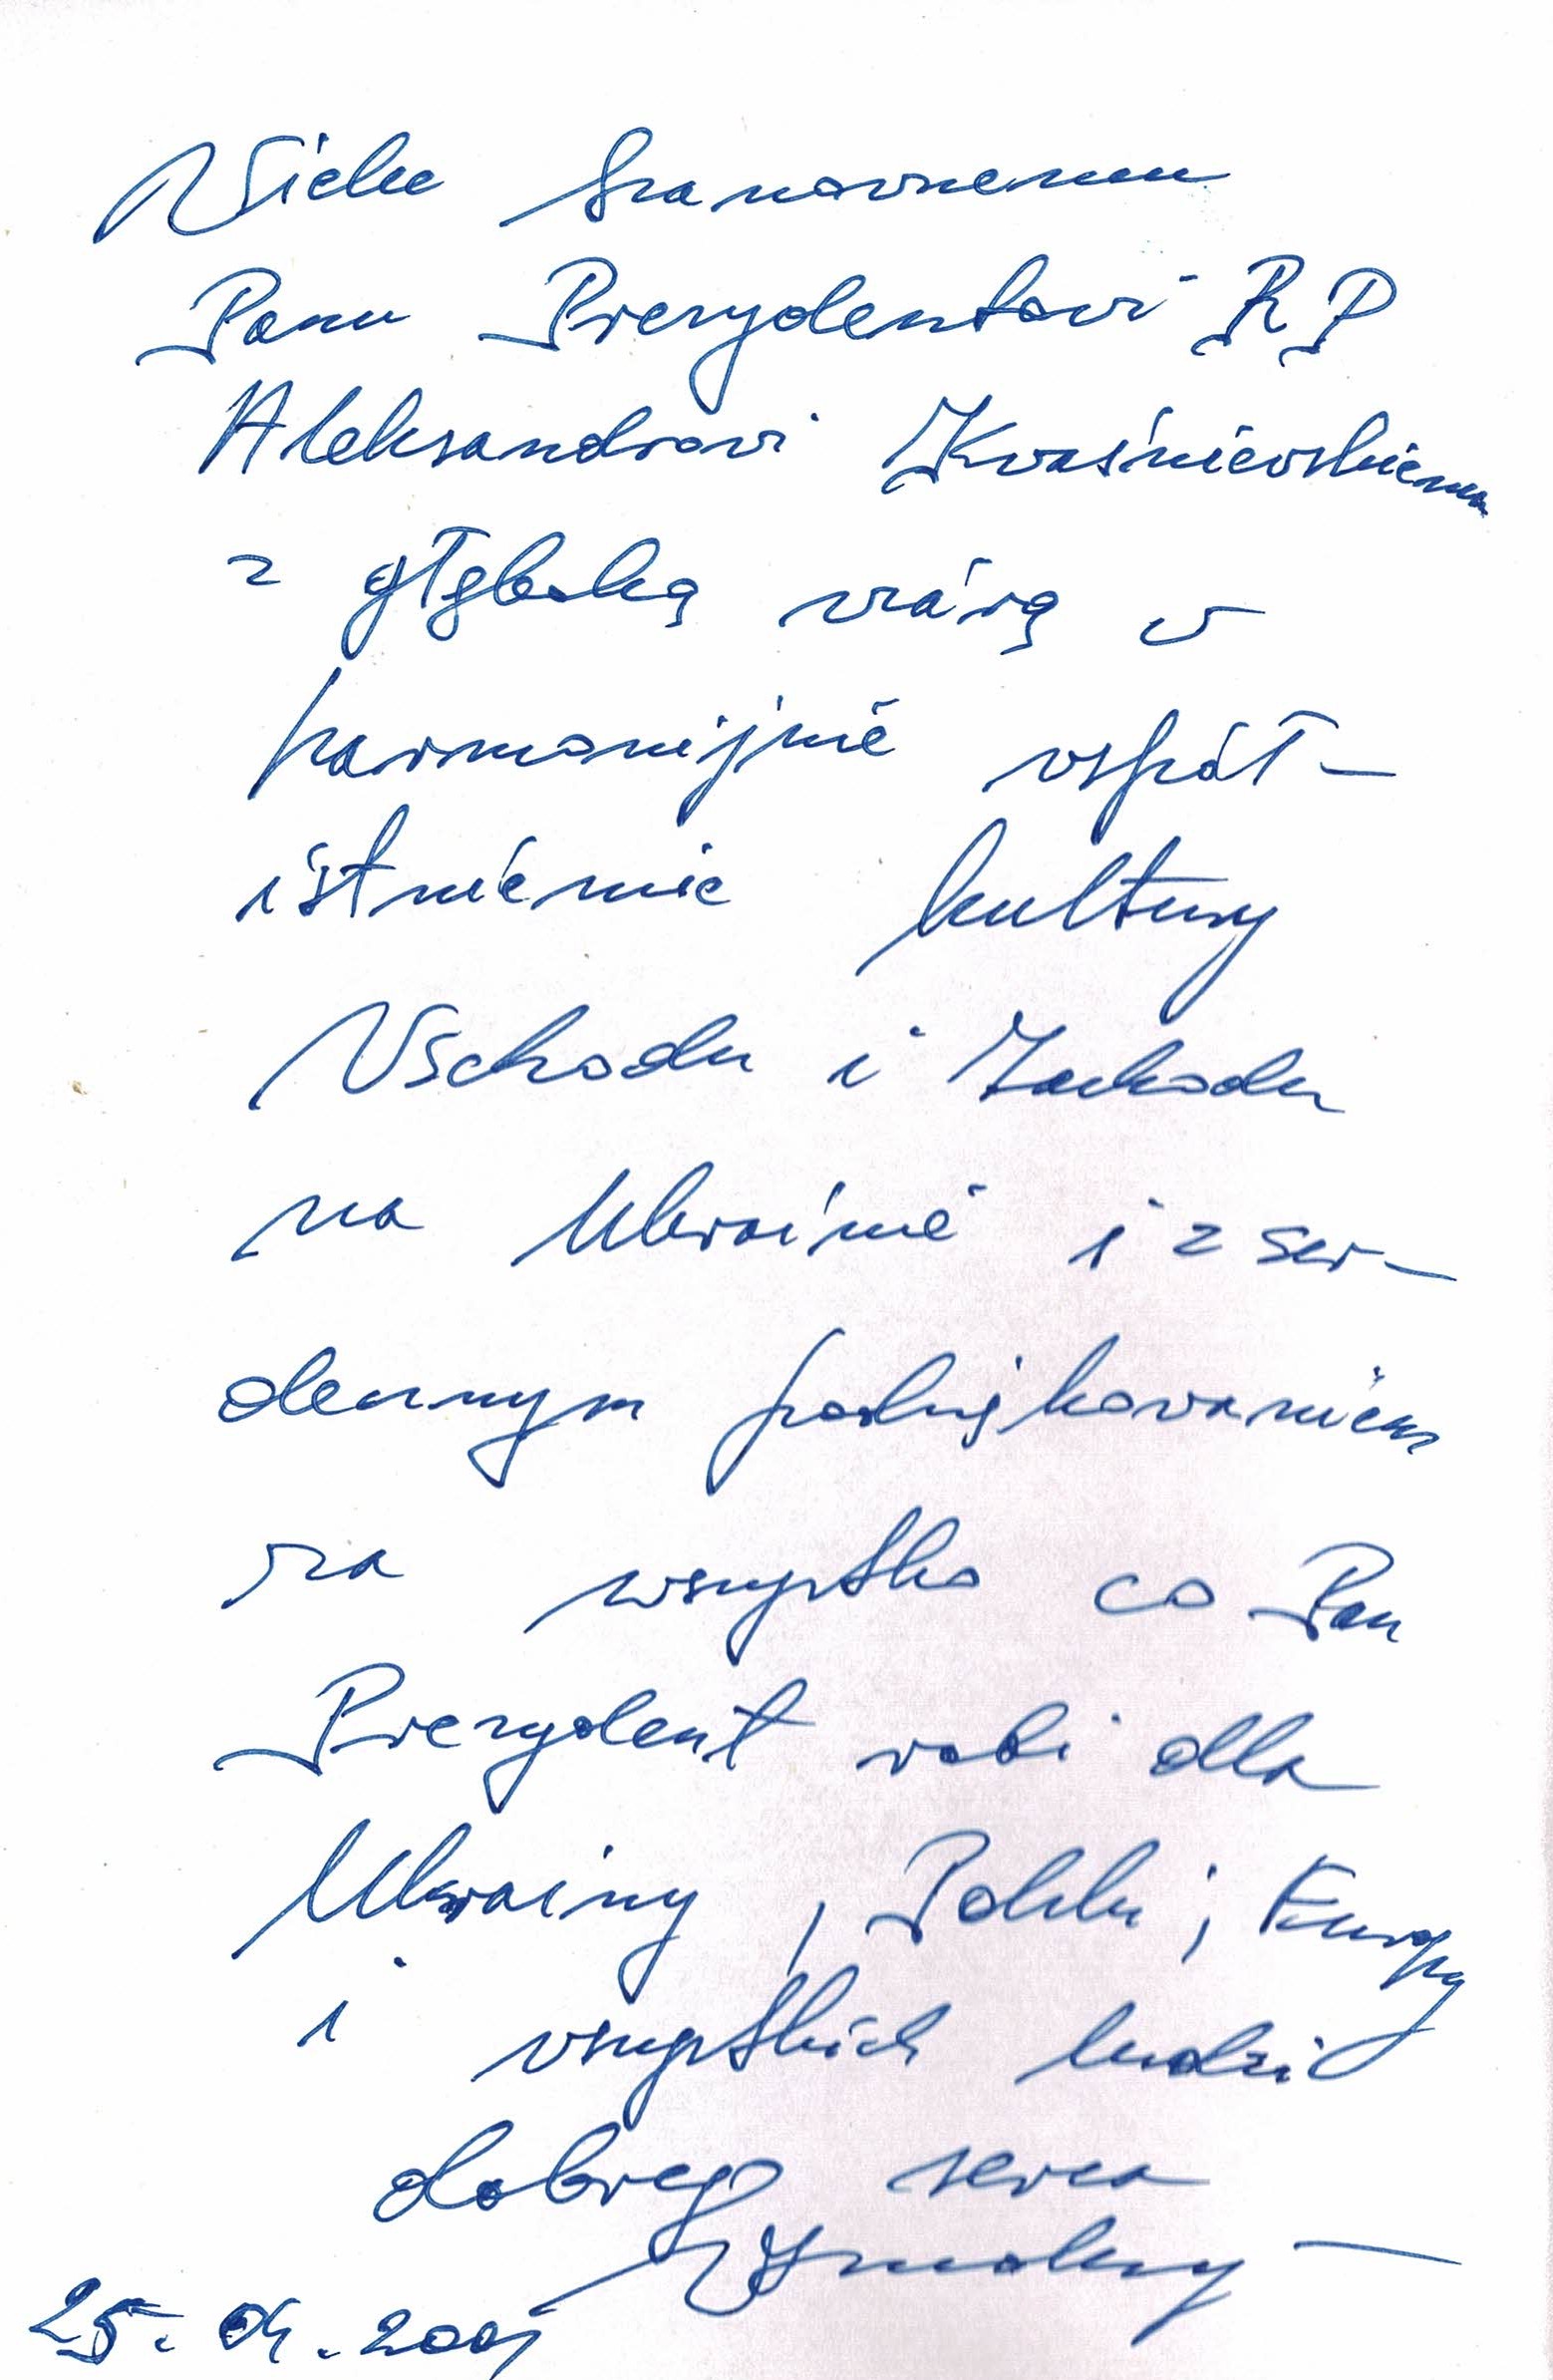 Wielce Szanownemu
Panu Prezydentowi RP
Aleksandrowi Kwaśniewskiemu
z głęboką wiarą w
harmonijnie współ-
istnienie kultury
Wschodu i Zachodu
na Ukrainie i z ser-
decznym podziękowaniem
za wszystko co Pan
Prezydent robi dla
Ukrainy, Polski, Europy
i wszystkich ludzi
dobrego serca
25.04.2005